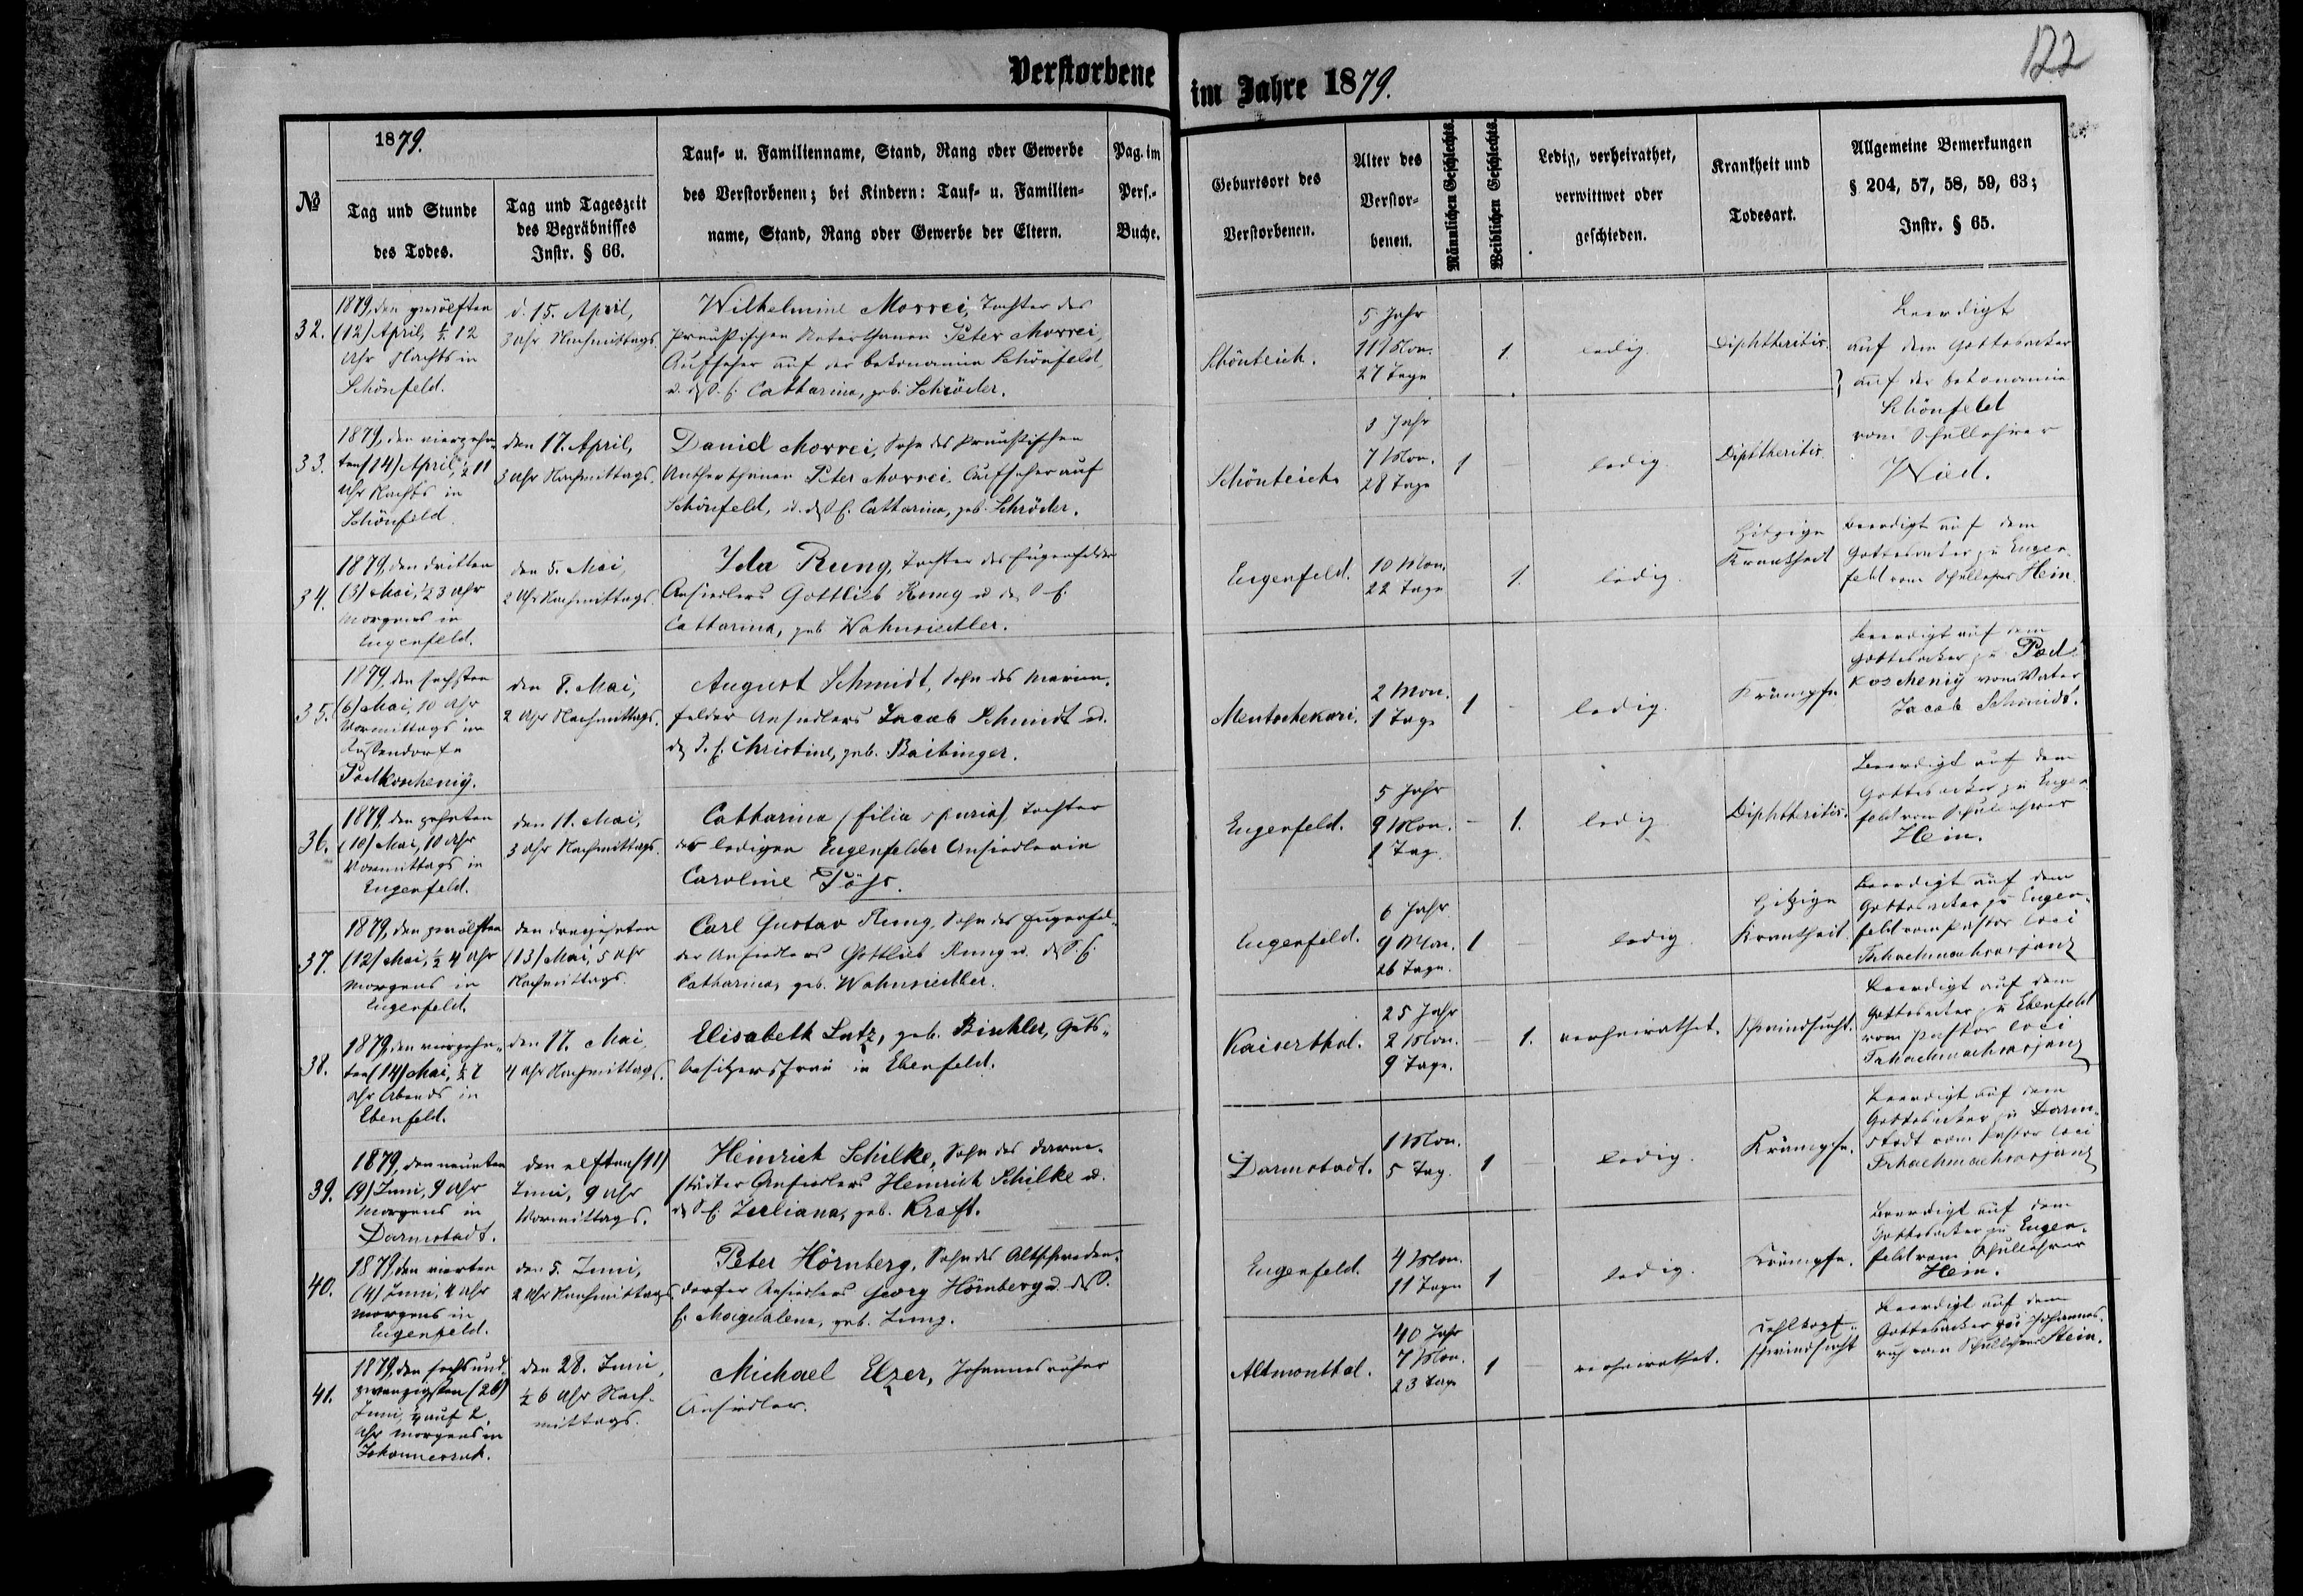 122
Verstorbene im Jahre 1879.
№
1879.
Tag und Stunde
des Todes.
Tag und Tageszeit
des Begräbnisses
Instr. § 66.
Tauf- u. Familienname, Stand, Rang oder Gewerbe
des Verstorbenen; bei Kindern: Tauf- u. Familien-
name, Stand, Rang oder Gewerbe der Eltern.
Pag. im
Pers.-
Buche.
Geburtsort des
Verstorbenen.
Alter des
Verstor-
benen.
Männlichen Geschlechts.
Weiblichen Geschlechts.
Ledig, verheirathet,
verwittwet oder
geschieden.
Krankheit und
Todesart.
Allgemeine Bemerkungen
§ 204, 57, 58, 59, 63;
Instr. § 65.
32.
1879, den zwölften
(12) April, ½ 12
Uhr Nachts in
Schönfeld.
d. 15. April,
3 Uhr Nachmittags.
Wilhelmine Morrei, Tochter des
Preußischen Unterthanen Peter Morrei,
Aufseher auf der Oekonomie Schönfeld,
Catharina, geb. Schröder.
Schönteich.
5 Jahr
11 Mon.
27 Tage
1.
ledig.
Diphtheritis.
Beerdigt
auf dem Gottesacker
auf der Oekonomie
Schönfeld
vom Schullehrer
Wied.
33.
1879, den vierzehn-
ten (14) April, ½ 11
Uhr Nachts in
Schönfeld.
den 17. April,
3 Uhr Nachmittags.
Daniel Morrei, Sohn des Preußischen
Unterthanen Peter Morrei, Aufseher auf
Schönfeld, Catharina, geb. Schröder.
Schönteich.
Jahr
7 Mon.
28 Tage
1
ledig.
Diphtheritis.
34.
1879, den dritten
(3) Mai, ½ 3 Uhr
Morgens in
Eugenfeld.
den 5. Mai,
2 Uhr Nachmittags.
Ida Rung, Tochter des Eugenfelder
Ansiedlers Gottlieb Rung
Catharina, geb. Wahnsiedtler.
Eugenfeld.
10 Mon.
22 Tage
1.
ledig.
Hitzige
Krankheit
Beerdigt auf dem
Gottesacker zu Eugen-
feld vom Schullehrer Hein.
35.
1879, den sechsten
(6) Mai, 10 Uhr
Vormittags im
Podkoschenij.
den 8. Mai,
2 Uhr Nachmittags.
August Schmidt, Sohn des Marien-
felder Ansiedlers Jacob Schmidt u.
Christine, geb. Baibinger.
Mentschekuri.
2 Mon.
1 Tag
1 -
ledig.
Krämpfe.
Beerdigt auf dem
Gottesacker zu Pod-
koschenij vom Vater
Jacob Schmidt.
36.
1879, den zehnten
(10) Mai, 10 Uhr
Vormittags in
Eugenfeld.
den 11. Mai,
3 Uhr Nachmittags.
Catharina (filia spuria), Tochter
der ledigen Eugenfelder Ansiedlerin
Caroline
Eugenfeld.
5 Jahr
9 Mon.
1 Tag.
- 1.
ledig
Diphtheritis.
Beerdigt auf dem
Gottesacker zu Eugen-
feld vom Schullehrer
Hein.
37.
1879, den zwölften
(12) Mai, ½ 4 Uhr
Morgens in
Eugenfeld.
den dreizehnten
(13) Mai, 5 Uhr
Nachmittags.
Carl Gustav Rung, Sohn des Eugenfel-
der Ansiedlers Gottlieb Rung u.
Catharina, geb. Wahnsiedtler.
Eugenfeld.
6 Jahr
9 Mon.
26 Tage.
1 -
ledig
Hitzige
Krankheit.
Beerdigt auf dem
Gottesacker zu Eugen-
feld vom Pastor loci
Tschachmachsasjanz
38.
1879, den vierzehn-
ten (14) Mai,
Uhr Abends in
Ebenfeld.
den 17. Mai,
4 Uhr Nachmittags.
Elisabeth Lutz, geb. Bischler, Guts-
besitzersfrau in Ebenfeld.
Kaiserthal.
25 Jahr
2 Mon.
9 Tage.
- 1.
verheirathet.
Schwindsucht.
Beerdigt auf dem
Gottesacker zu Ebenfeld
vom Pastor loci
Tschachmachsasjanz
39.
1879, den neunten
(9) Juni, 9 Uhr
Morgens in
Darmstadt.
den elften (11)
Juni, 9 Uhr
Vormittags.
Heinrich Schilke, Sohn des Darm-
städter Ansiedlers Heinrich Schilke u.
Juliana, geb. Kraft.
Darmstadt.
1 Mon.
5 Tag.
1 -
ledig.
Krämpfe.
Beerdigt auf dem
Gottesacker zu Darm-
stadt vom Pastor loci
Tschachmachsasjanz
40.
1879, den vierten
(4) Juni, 4 Uhr
Morgens in
Eugenfeld.
den 5. Juni,
2 Uhr Nachmittags
Peter Hörnberg, Sohn des Altschweden-
dorfer Ansiedlers Georg Hörnberg u.
Magdalena, geb. Jung.
Eugenfeld.
4 Mon.
11 Tage
1
ledig.
Krämpfe.
Beerdigt auf dem
Gottesacker zu Eugen-
feld vom Schullehrer
Hein.
41.
1879, den sechsund-
zwanzigsten (26)
Juni, ¼ auf 2
Uhr Morgens in
Johannesruh.
den 28. Juni,
½ 6 Uhr Nach-
mittags.
Michael Elzer, Johannesruher
Ansiedler.
Altmonthal.
40 Jahr
7 Mon.
23 Tage
1 -
verheirathet.
Kehlkopf-
schwindsucht
Beerdigt auf dem
Gottesacker zu Johannes-
ruh vom Schullehrer Stein.